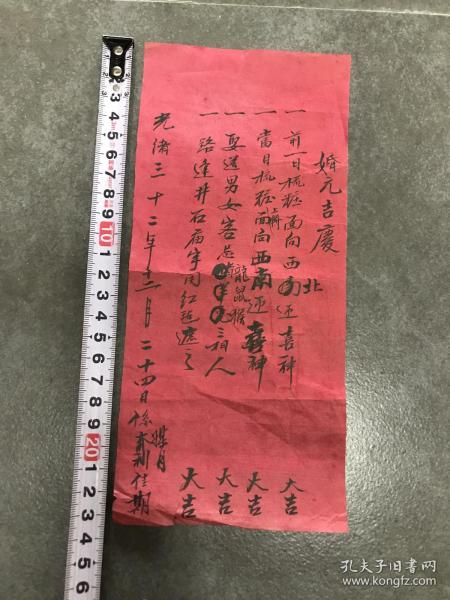 婚元吉慶
一 前一日梳粧面向西北迎喜神 大吉
一 當日梳粧上轎面向西南迎喜神 大吉
一 娶送男女客忌龍鼠猴三相人 大吉
一 路逢井石庙宇用紅毡遮之 大吉
光緒三十二年十二月二十四日係 佳期
孔夫子旧书网
www.kongfz.com
1 2 3 4 5 6 7 8 9 10 1 2 3 4 5 6 7 8 9 20 1 2 3 4 5 6